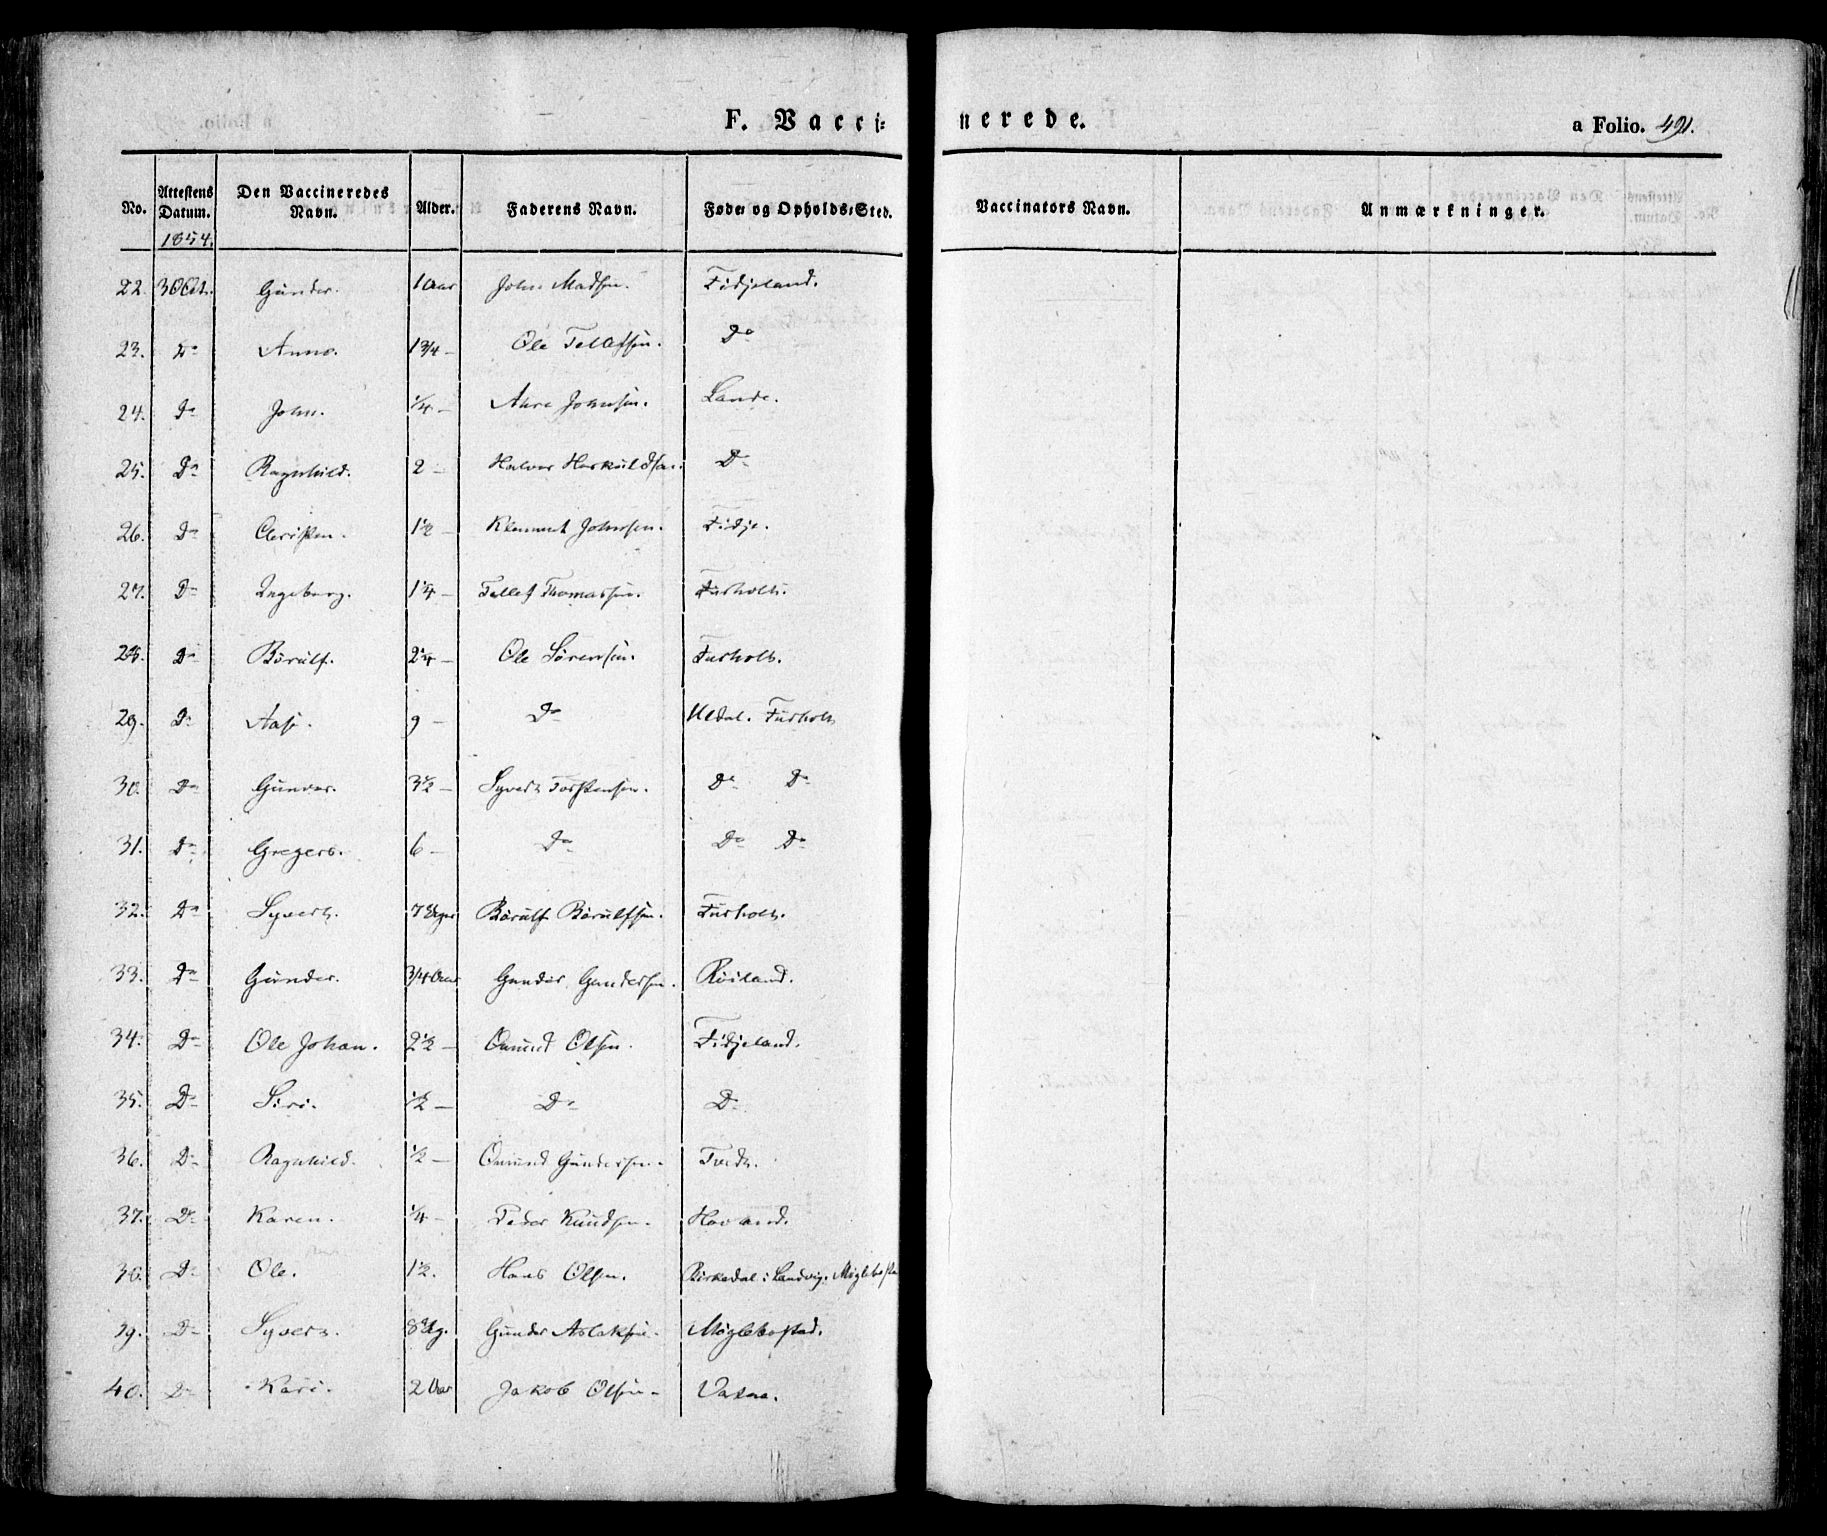 F. Vacci⸗ nerede. a Folio. 491.
No. Attestens Datum. Den Vaccineredes Navn. Alder. Faderens Navn. Føde⸗ og Opholds⸗Sted. Vaccinators Navn. Anmærkninger.
1854.
22. 30 Oct. Gunder. 1 Aar John Madsen. Fidjeland.
23. Do Anne. 1 3/4 — Ole Tellefsen. Do
24. Do John. 1/4 — Johnsen. Lande.
25. Do Ragnhild. 2 — Halvor Do
26. Do Christen. 1 1/2 — Klemmet Johnsen. Fidje.
27. Do Ingeborg. 1 1/4 — Tellef Thomassen. Furholt.
28. Do Börulf. 2 1/4 — Ole Sörensen. Furholt.
29. Do Aase. 9 — Do Uldal. Furholt
30. Do Gunvor. 3 1/2 — Syvert Torstensen. Do Do
31. Do Gregers. 6 — Do Do Do
32. Do Syvert. 7 Uger Börulf Börulfsen. Furholt.
33. Do Gunder. 3/4 Aar Gunder Gundersen. Röiland.
34. Do Ole Johan. 2 1/2 — Omund Olsen. Fidjeland.
35. Do Siri. 1/2 — Do Do
36. Do Ragnhild. 1/2 — Omund Gundersen. Tvedt.
37. Do Karen. 1/4 — Peder Knudsen. Hovland.
38. Do Ole. 1 1/2. Hans Olsen. Birkedal i Landvig. Møglebosta
39. Do Syvert. 8 Ug. Gunder Aslaksen. Møglebostad.
40. Do Kari. 2 Aar Jakob Olsen.